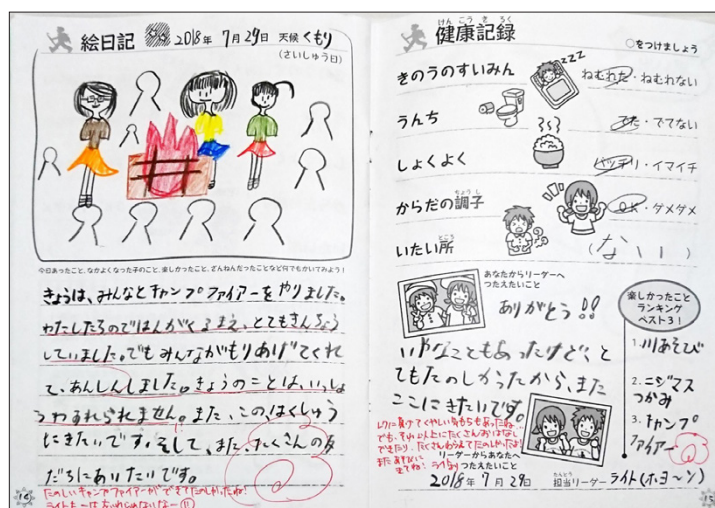 絵日記 2018年 7月29日 天候 くもり
(さいしゅう日)
今日あったこと、なかよくなった子のこと、楽しかったこと、ざんねんだったことなど何でもかいてみよう!
きょうは、みんなとキャンプファイアーをやりました。
わたしたちのではんがくるまえ、とてもきんちょう
していました。でもみんながもりあげてくれ
て、あんしんしました。きょうのことは、いっしょ
うわすれられません。また、この、はくしゅう
にきたいです。そして、また、たくさんの友
だちにあいたいです。
たのしいキャンプファイアーができてたのしかったね!
16
けんこうきろく
健康記録
○をつけましょう
きのうのすいみん ねむれた・ねむれない
ZZZ
うんち でた・でてない
しょくよく バッチリ・イマイチ
ちょうし
からだの調子 OK・ダメダメ
ところ
いたい所 (ない)
あなたからリーダーへ
つたえたいこと
ありがとう!!
いやなこともあったけど、と
てもたのしかったから、また
ここにきたいです。
楽しかったこと
ランキング
ベスト3!
1.川あそび
2.ニジマス
つかみ
3.キャンプ
ファイアー
でも、それ以上にたくさんおはなし
リーダーからあなたへ
つたえたいこと
2018年 7月29日
たんとう
担当リーダー ライト(ホヨ〜ン)
15